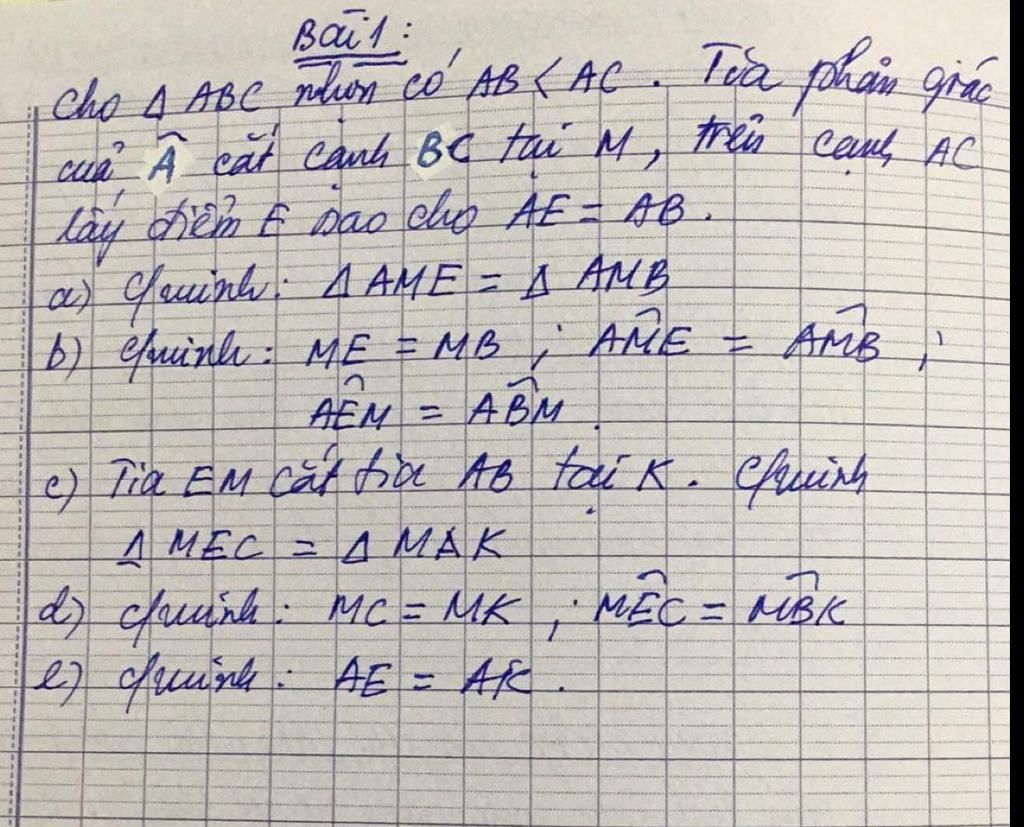 Bài 1:
Cho Δ ABC nhọn có AB < AC. Tia phân giác
của Â cắt cạnh BC tại M, trên cạnh AC
lấy điểm E sao cho AE = AB.
a) C/minh: Δ AME = Δ AMB
b) C/minh: ME = MB ; AM̂E = AM̂B ;
AÊM = AB̂M.
c) Tia EM cắt tia AB tại K. C/minh
Δ MEC = Δ MAK
d) C/minh: MC = MK ; MÊC = MB̂K
e) C/minh: AE = AK.